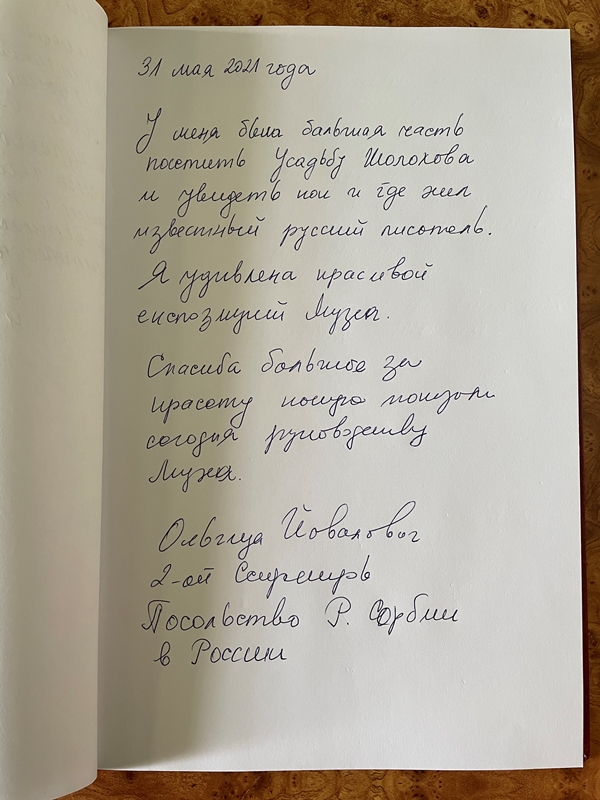 31 мая 2021 года
У меня была балышая часть
посетить Усадьбу Шолохова
и увидеть как и где жил
известный русский писатель.
Я удивлена красивой
експозиций Музеа.
Спасиба большое за
красоту
сегодня руководству
Музеа.
Ольгица Йовановыч
2-ой Секретарь
Посольство Р. Сербии
в России